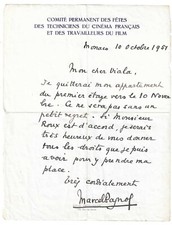 COMITÉ PERMANENT DES FÊTES
DES TECHNICIENS DU CINÉMA FRANÇAIS
ET DES TRAVAILLEURS DU FILM
Monaco 10 octobre 1951
Mon cher Viala.
Je quitterai mon appartement
du premier étage vers le 10 Novem
bre. Ce ne sera pas sans un
petit regret. Si Monsieur
Roux est d'accord, je serais
très heureux de vous donner
tous les droits que je puis
avoir pour y prendre ma
place.
très cordialement
Marcel Pagnol